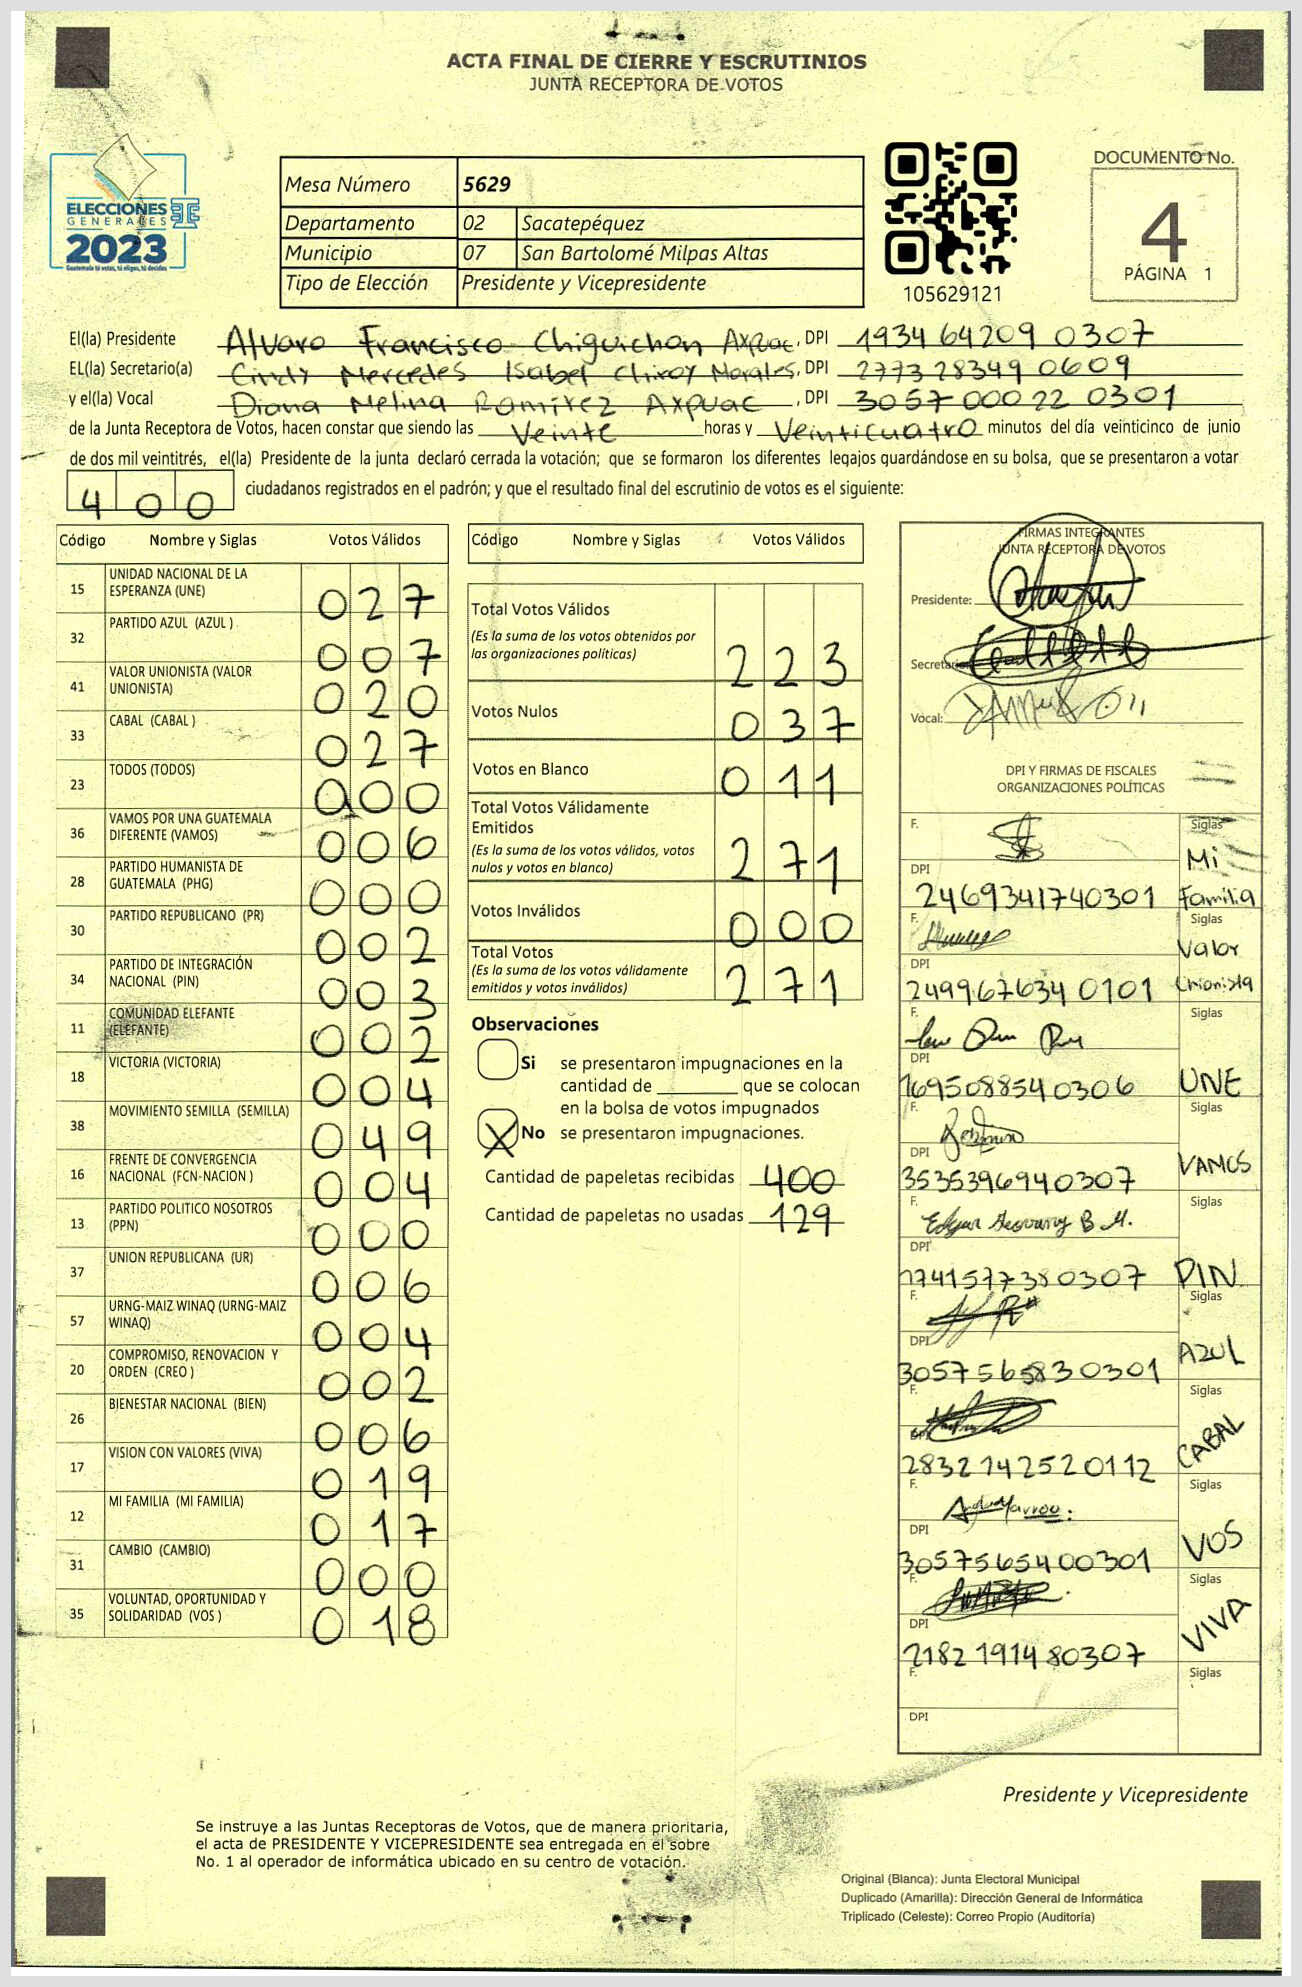 ACTA FINAL DE CIERRE Y ESCRUTINIOS
JUNTA RECEPTORA DE VOTOS
ELECCIONES
GENERALES
2023
Guatemala tú votas, tú eliges, tú decides
Mesa Número 5629
Departamento 02 Sacatepéquez
Municipio 07 San Bartolomé Milpas Altas
Tipo de Elección Presidente y Vicepresidente
105629121
DOCUMENTO No.
4
PÁGINA 1
El(la) Presidente Alvaro Francisco Chiguichon Axpuac, DPI 1934 64209 0307
EL(la) Secretario(a) Cindy Mercedes Isabel Chiroy Morales, DPI 2773 28349 0609
y el(la) Vocal Diana Melina Ramirez Axpuac, DPI 3057 00022 0301
de la Junta Receptora de Votos, hacen constar que siendo las Veinte horas y Veinticuatro minutos del día veinticinco de junio
de dos mil veintitrés, el(la) Presidente de la junta declaró cerrada la votación; que se formaron los diferentes legajos guardándose en su bolsa, que se presentaron a votar
400 ciudadanos registrados en el padrón; y que el resultado final del escrutinio de votos es el siguiente:
Código Nombre y Siglas Votos Válidos
15 UNIDAD NACIONAL DE LA ESPERANZA (UNE) 027
32 PARTIDO AZUL (AZUL ) 007
41 VALOR UNIONISTA (VALOR UNIONISTA) 020
33 CABAL (CABAL ) 027
23 TODOS (TODOS) 000
36 VAMOS POR UNA GUATEMALA DIFERENTE (VAMOS) 006
28 PARTIDO HUMANISTA DE GUATEMALA (PHG) 000
30 PARTIDO REPUBLICANO (PR) 002
34 PARTIDO DE INTEGRACIÓN NACIONAL (PIN) 003
11 COMUNIDAD ELEFANTE (ELEFANTE) 002
18 VICTORIA (VICTORIA) 004
38 MOVIMIENTO SEMILLA (SEMILLA) 049
16 FRENTE DE CONVERGENCIA NACIONAL (FCN-NACION ) 004
13 PARTIDO POLITICO NOSOTROS (PPN) 000
37 UNION REPUBLICANA (UR) 006
57 URNG-MAIZ WINAQ (URNG-MAIZ WINAQ) 004
20 COMPROMISO, RENOVACION Y ORDEN (CREO ) 002
26 BIENESTAR NACIONAL (BIEN) 006
17 VISION CON VALORES (VIVA) 019
12 MI FAMILIA (MI FAMILIA) 017
31 CAMBIO (CAMBIO) 000
35 VOLUNTAD, OPORTUNIDAD Y SOLIDARIDAD (VOS ) 018
Código Nombre y Siglas Votos Válidos
Total Votos Válidos
(Es la suma de los votos obtenidos por
las organizaciones políticas) 223
Votos Nulos 037
Votos en Blanco 011
Total Votos Válidamente
Emitidos
(Es la suma de los votos válidos, votos
nulos y votos en blanco) 271
Votos Inválidos 000
Total Votos
(Es la suma de los votos válidamente
emitidos y votos inválidos) 271
Observaciones
Si se presentaron impugnaciones en la
cantidad de ________ que se colocan
en la bolsa de votos impugnados
X No se presentaron impugnaciones.
Cantidad de papeletas recibidas 400
Cantidad de papeletas no usadas 129
FIRMAS INTEGRANTES
JUNTA RECEPTORA DE VOTOS
Presidente:
Secretario
Vocal:
DPI Y FIRMAS DE FISCALES
ORGANIZACIONES POLÍTICAS
F. Siglas
DPI 2469341740301 Mi Familia
F. Siglas
DPI 249967634 0101 Valor Unionista
F. Siglas
DPI 1695088540306 UNE
F. Siglas
DPI 3535396940307 VAMOS
F. Edgar Geovany B M. Siglas
DPI 1741577380307 PIN
F. Siglas
DPI 3057565830301 AZUL
F. Siglas
DPI 2832142520112 CABAL
F. Siglas
DPI 3057565400301 VOS
F. Siglas
DPI 2182191480307 VIVA
F. Siglas
DPI
Presidente y Vicepresidente
Se instruye a las Juntas Receptoras de Votos, que de manera prioritaria,
el acta de PRESIDENTE Y VICEPRESIDENTE sea entregada en el sobre
No. 1 al operador de informática ubicado en su centro de votación.
Original (Blanca): Junta Electoral Municipal
Duplicado (Amarilla): Dirección General de Informática
Triplicado (Celeste): Correo Propio (Auditoría)